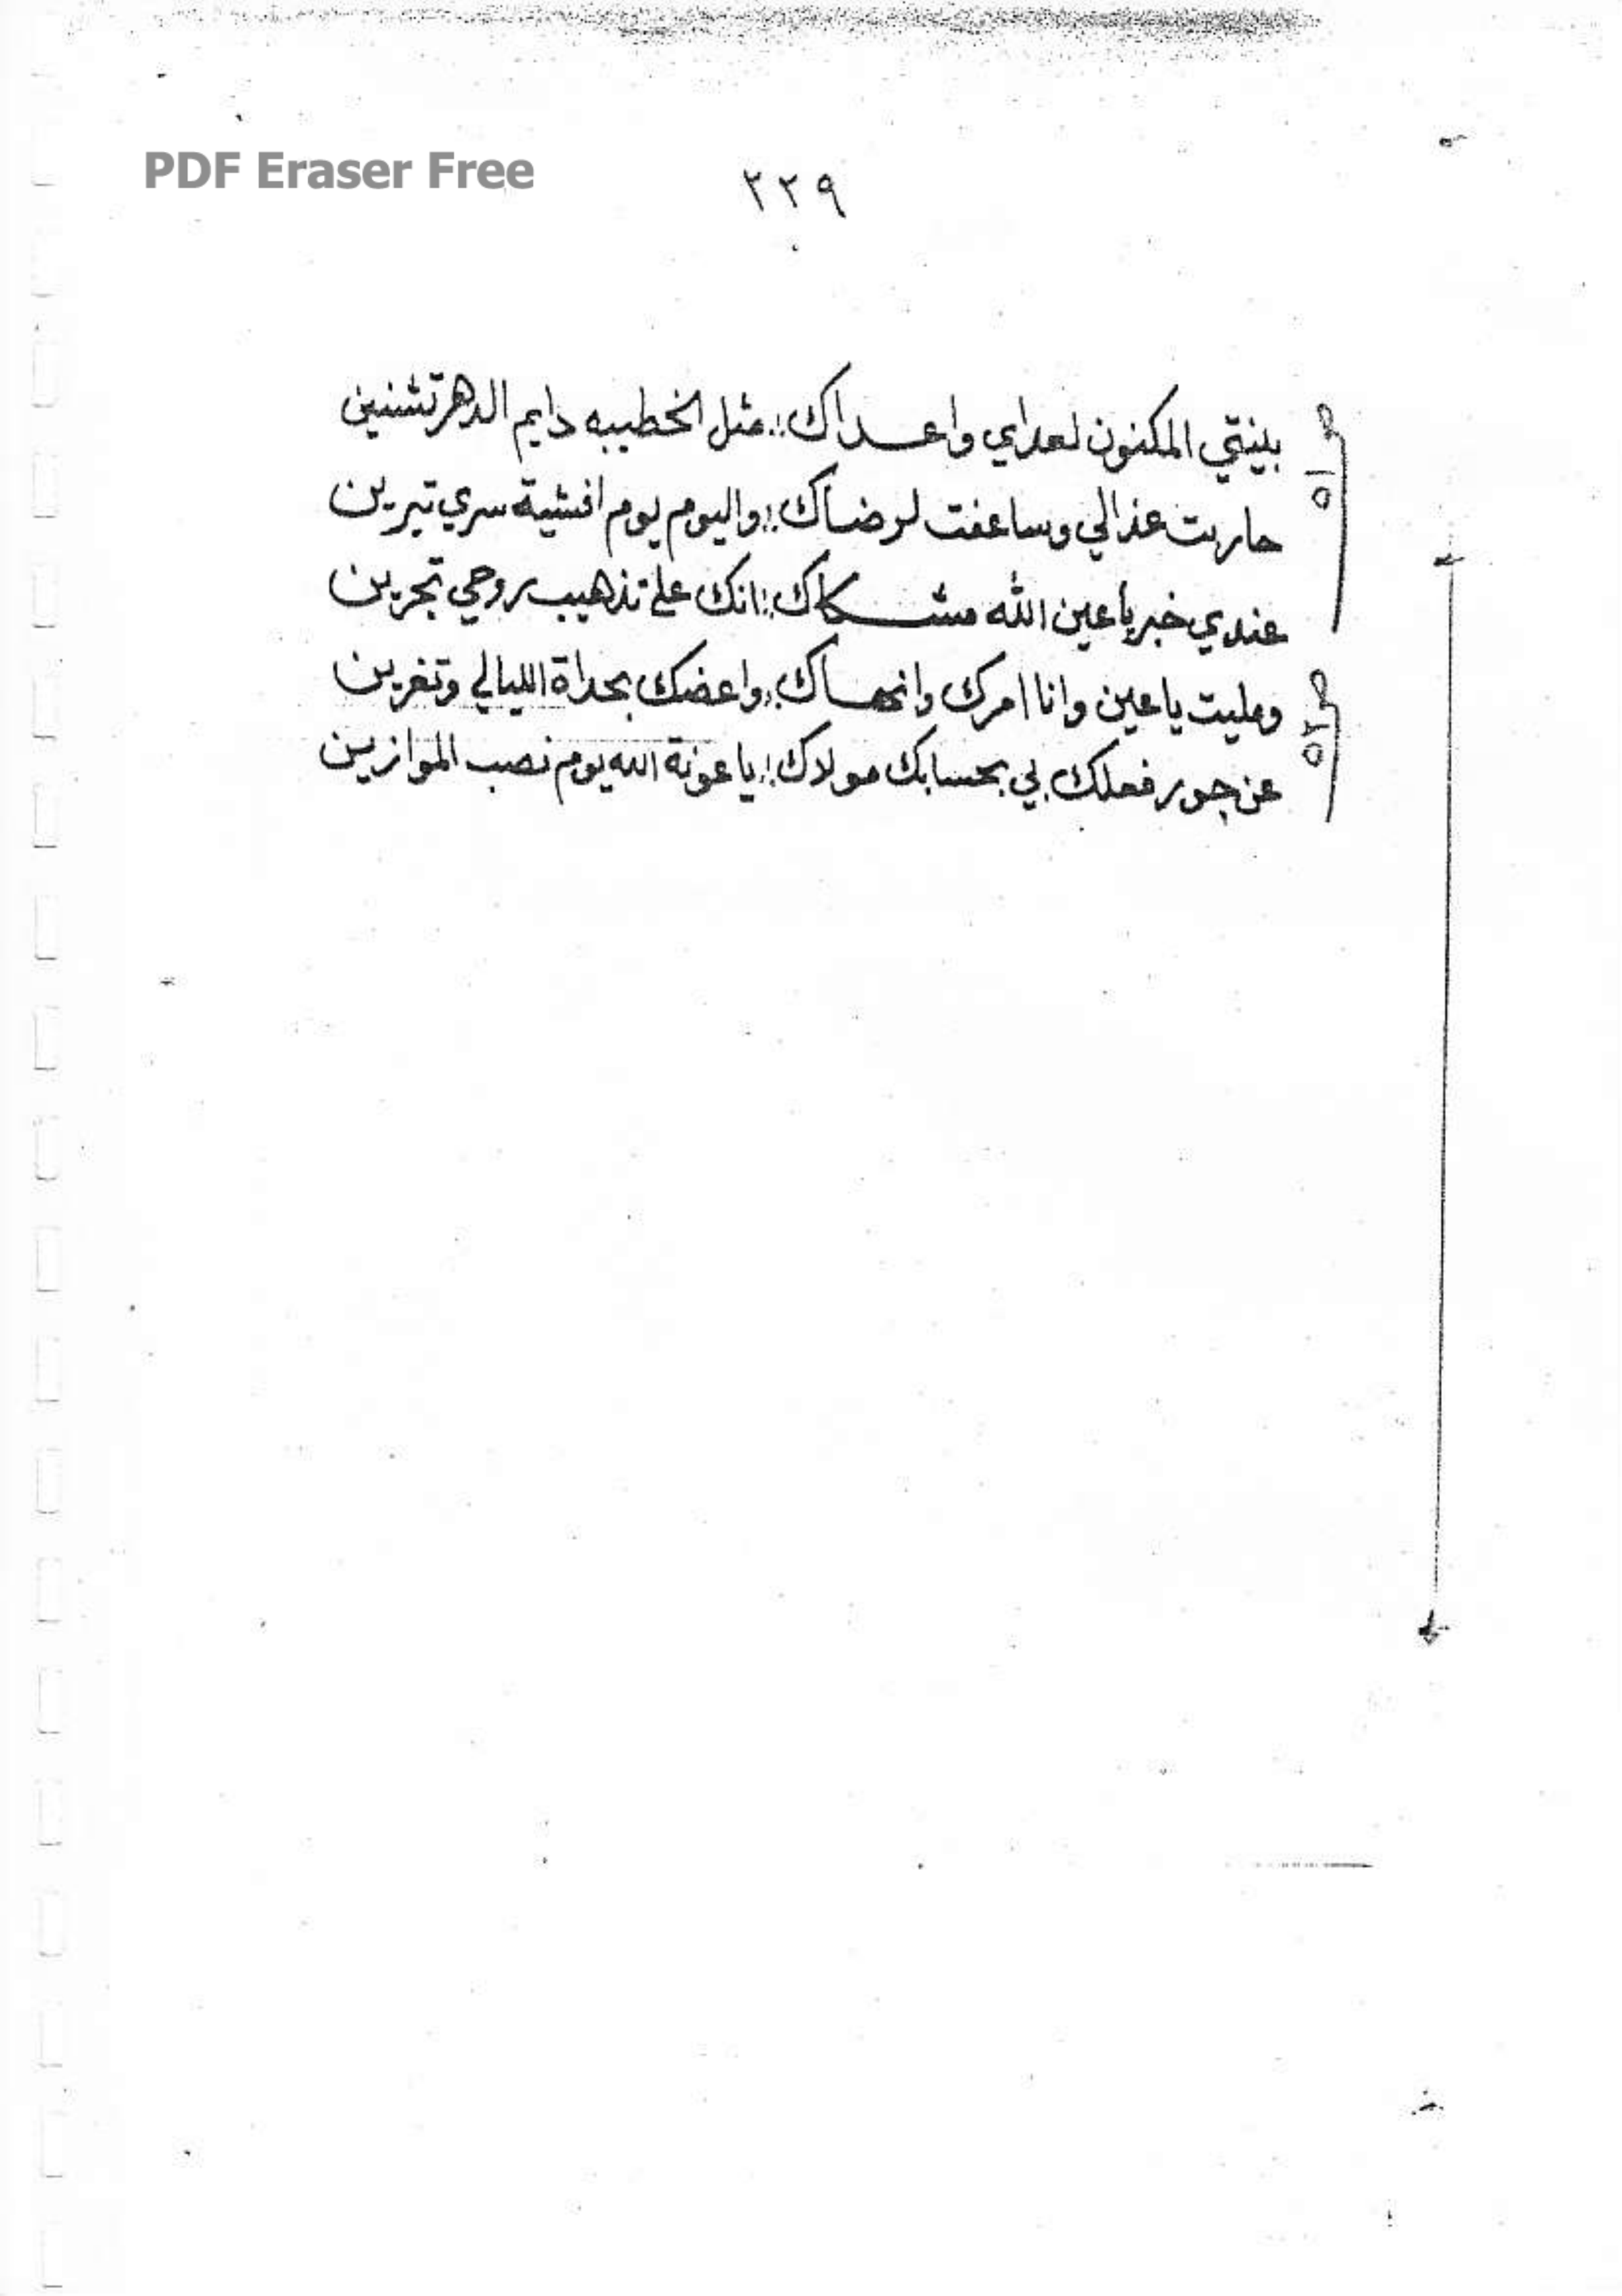 PDF Eraser Free
٢٢٩
بينتي المكنون لعداي واعداك :. مثل الخطيبه دايم الدهر تشنين
حاربت عذالي وساعفت لرضاك :. واليوم يوم افشية سري تبرين
عندي خبر يا عين الله مشكاك :. انك على تذهيب روحي تجرين
ومليت يا عين وانا امرك وانهاك :. واعضك بحداة الليالي وتغرين
عن جور فعلك بي بحسابك مولاك :. يا عونة الله يوم نصب الموازين